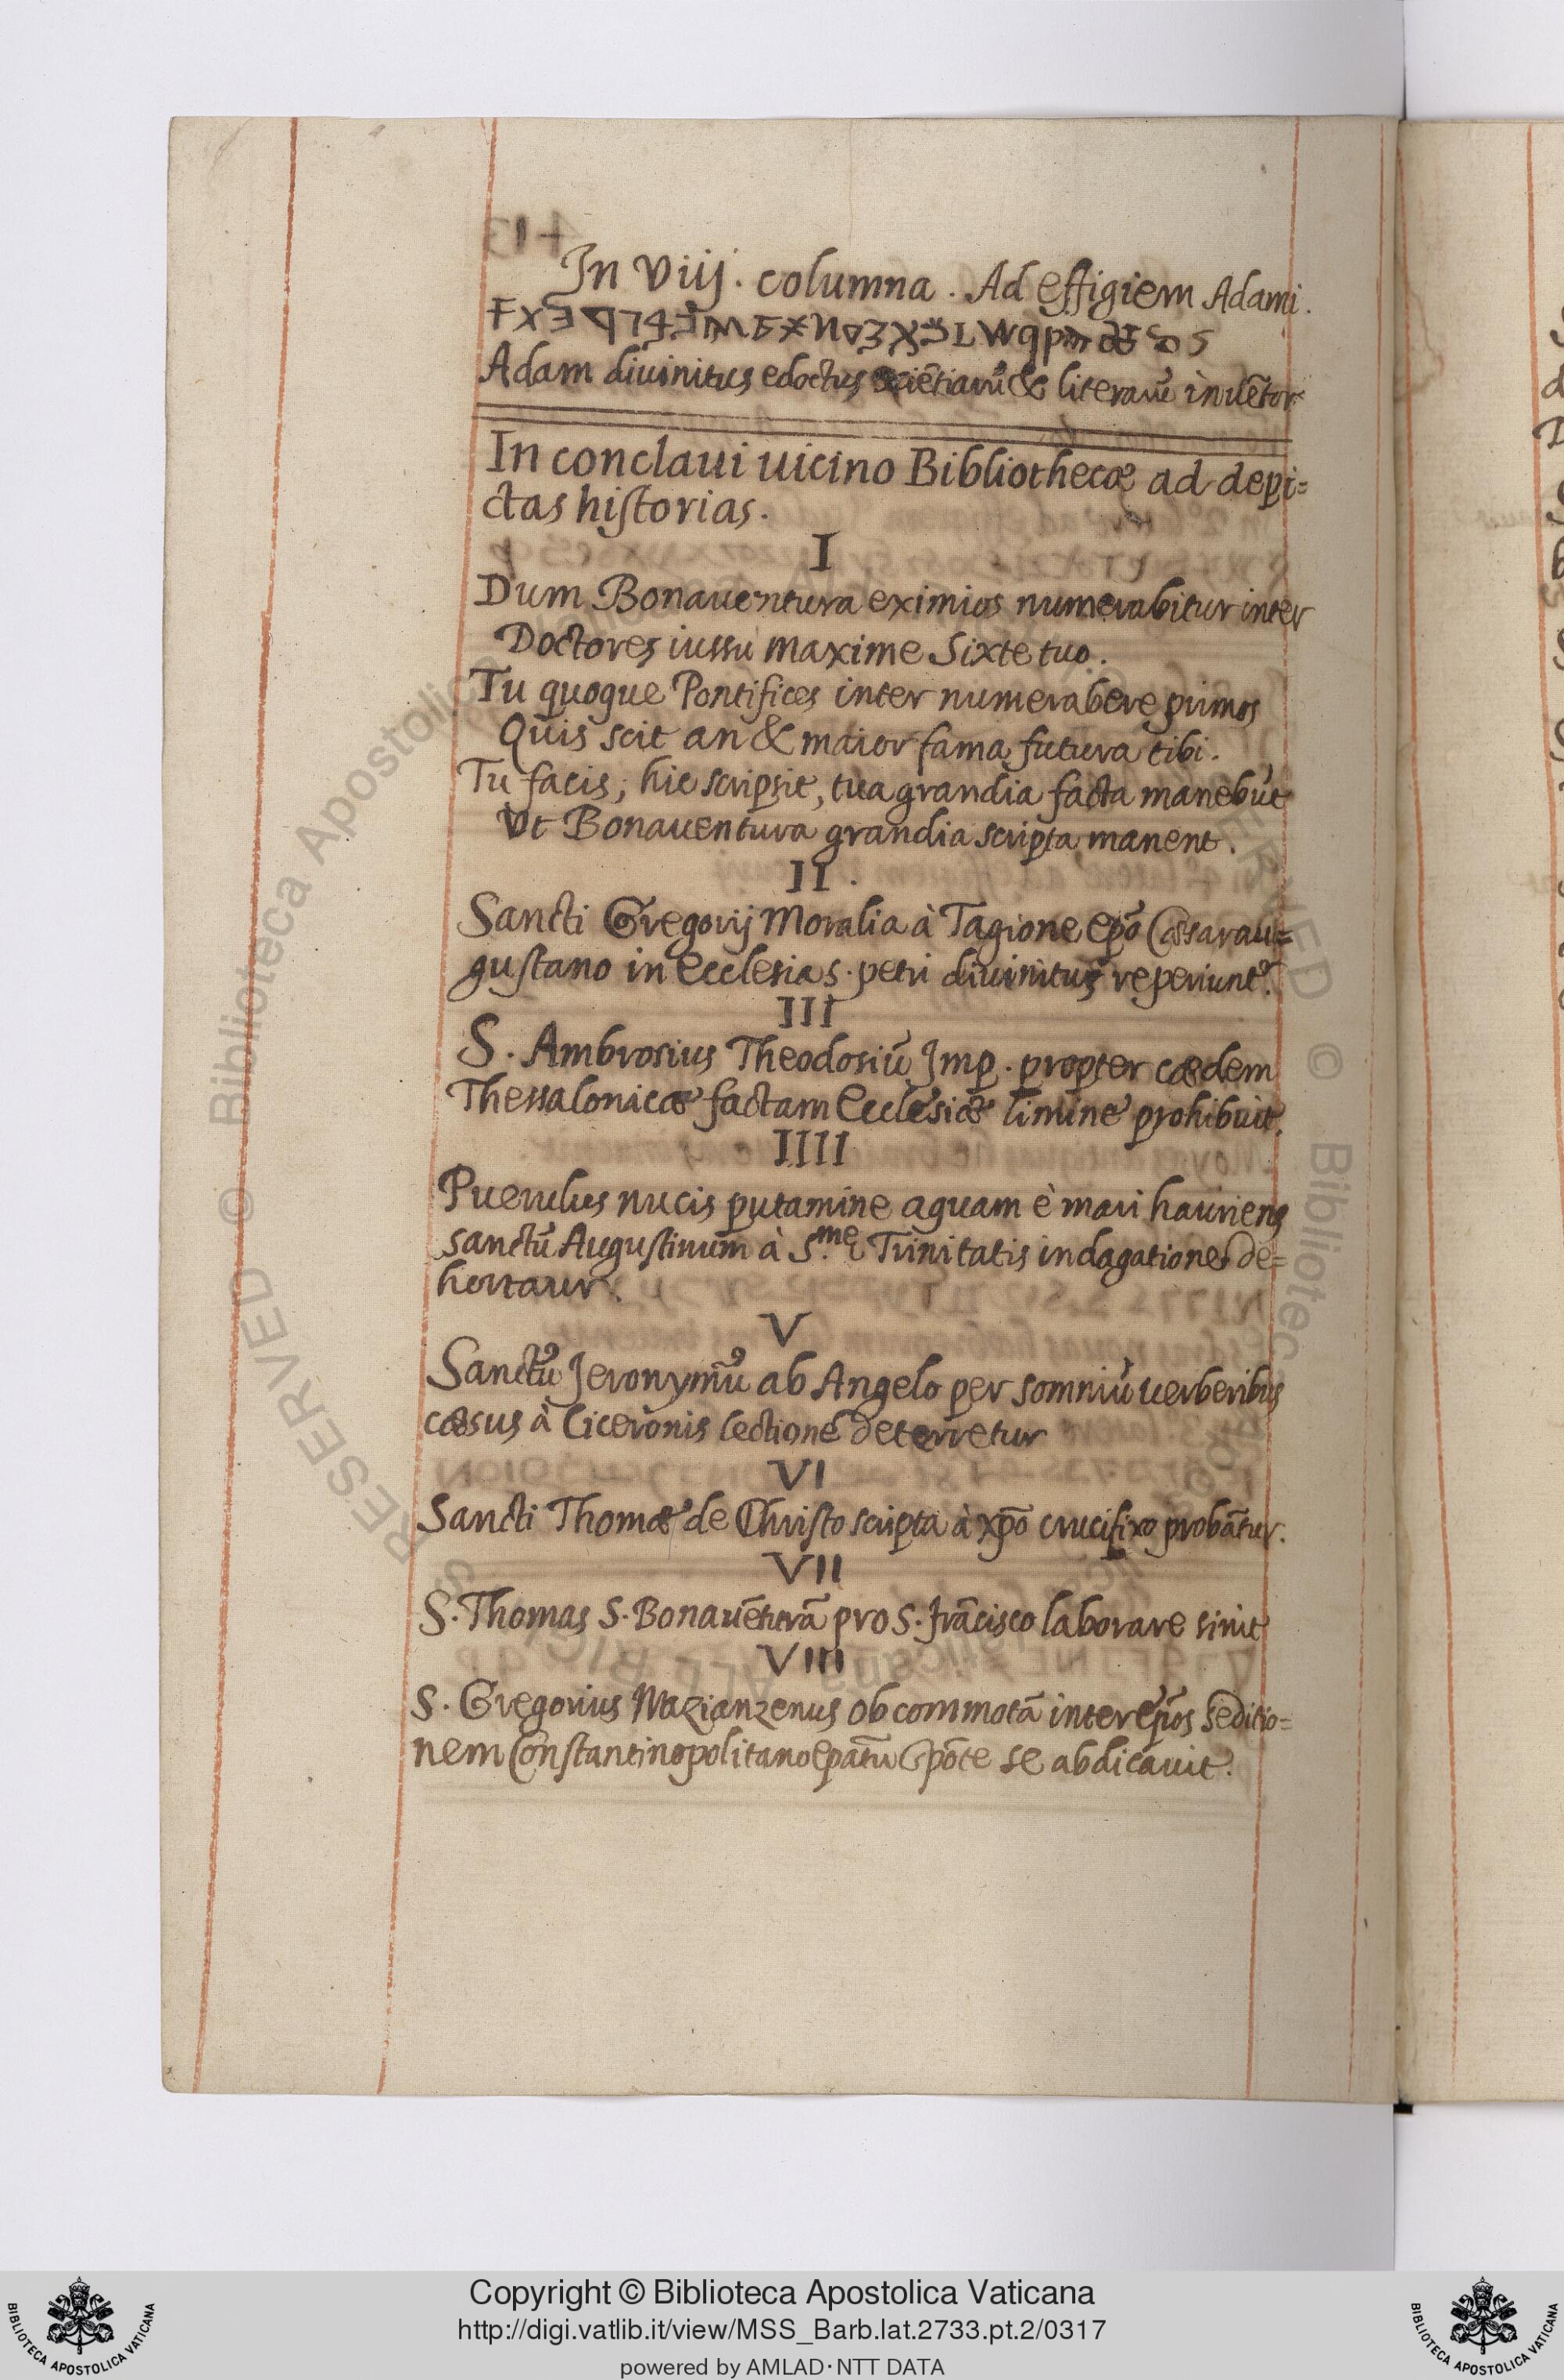 In viij. columna. Ad effigiem Adami.
Adam diuinitus edoctus sciētiarū & literarū inuētor
In conclaui uicino Bibliothecæ ad depi=
ctas historias.
I
Dum Bonauentura eximios numerabitur inter
Doctores iussu maxime Sixte tuo.
Tu quoque Pontifices inter numerabere primos
Quis scit an & maior fama futura tibi.
Tu facis; hic scripsit, tua grandia facta manebūt
Vt Bonauentura grandia scripta manent.
II.
Sancti Gregorij Moralia à Tagione ep̄o Cæsarau=
gustano in Ecclesia s. petri diuinitus reperiunt.
III
S. Ambrosius Theodosiū Imp. propter cædem
Thessalonicæ factam Ecclesiæ limine prohibuit.
IIII
Puerulus nucis putamine aquam è mari hauriens
sanctū Augustinum à S.me Trinitatis indagatione de=
hortaur.
V
Sanctū Jeronymū ab Angelo per somniū uerberibus
cæsus à Ciceronis lectione deterretur
VI
Sancti Thomæ de Christo scripta à xp̄o crucifixo probātur.
VII
S. Thomas S. Bonauēturā pro S. frācisco laborare sinit
VIII
S. Gregorius Nazianzenus ob commotā inter ep̄os seditio=
nem Constantinopolitano ep̄atu spōte se abdicauit.
Biblioteca Apostolica
RESERVED © Biblioteca Apostolica
Copyright © Biblioteca Apostolica Vaticana
http://digi.vatlib.it/view/MSS_Barb.lat.2733.pt.2/0317
powered by AMLAD·NTT DATA
BIBLIOTECA APOSTOLICA VATICANA
BIBLIOTECA APOSTOLICA VATICANA